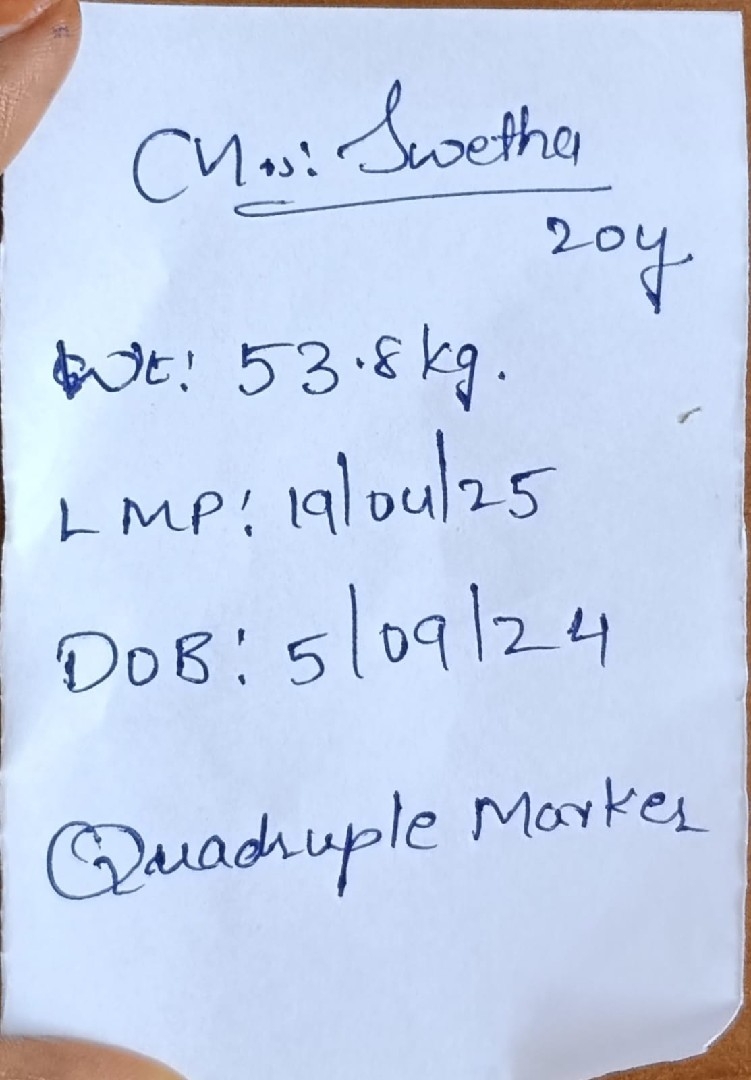 Mrs: Swetha
20y
Wt: 53.8kg.
LMP: 19/04/25
DOB: 5/09/24
Quadruple Marker